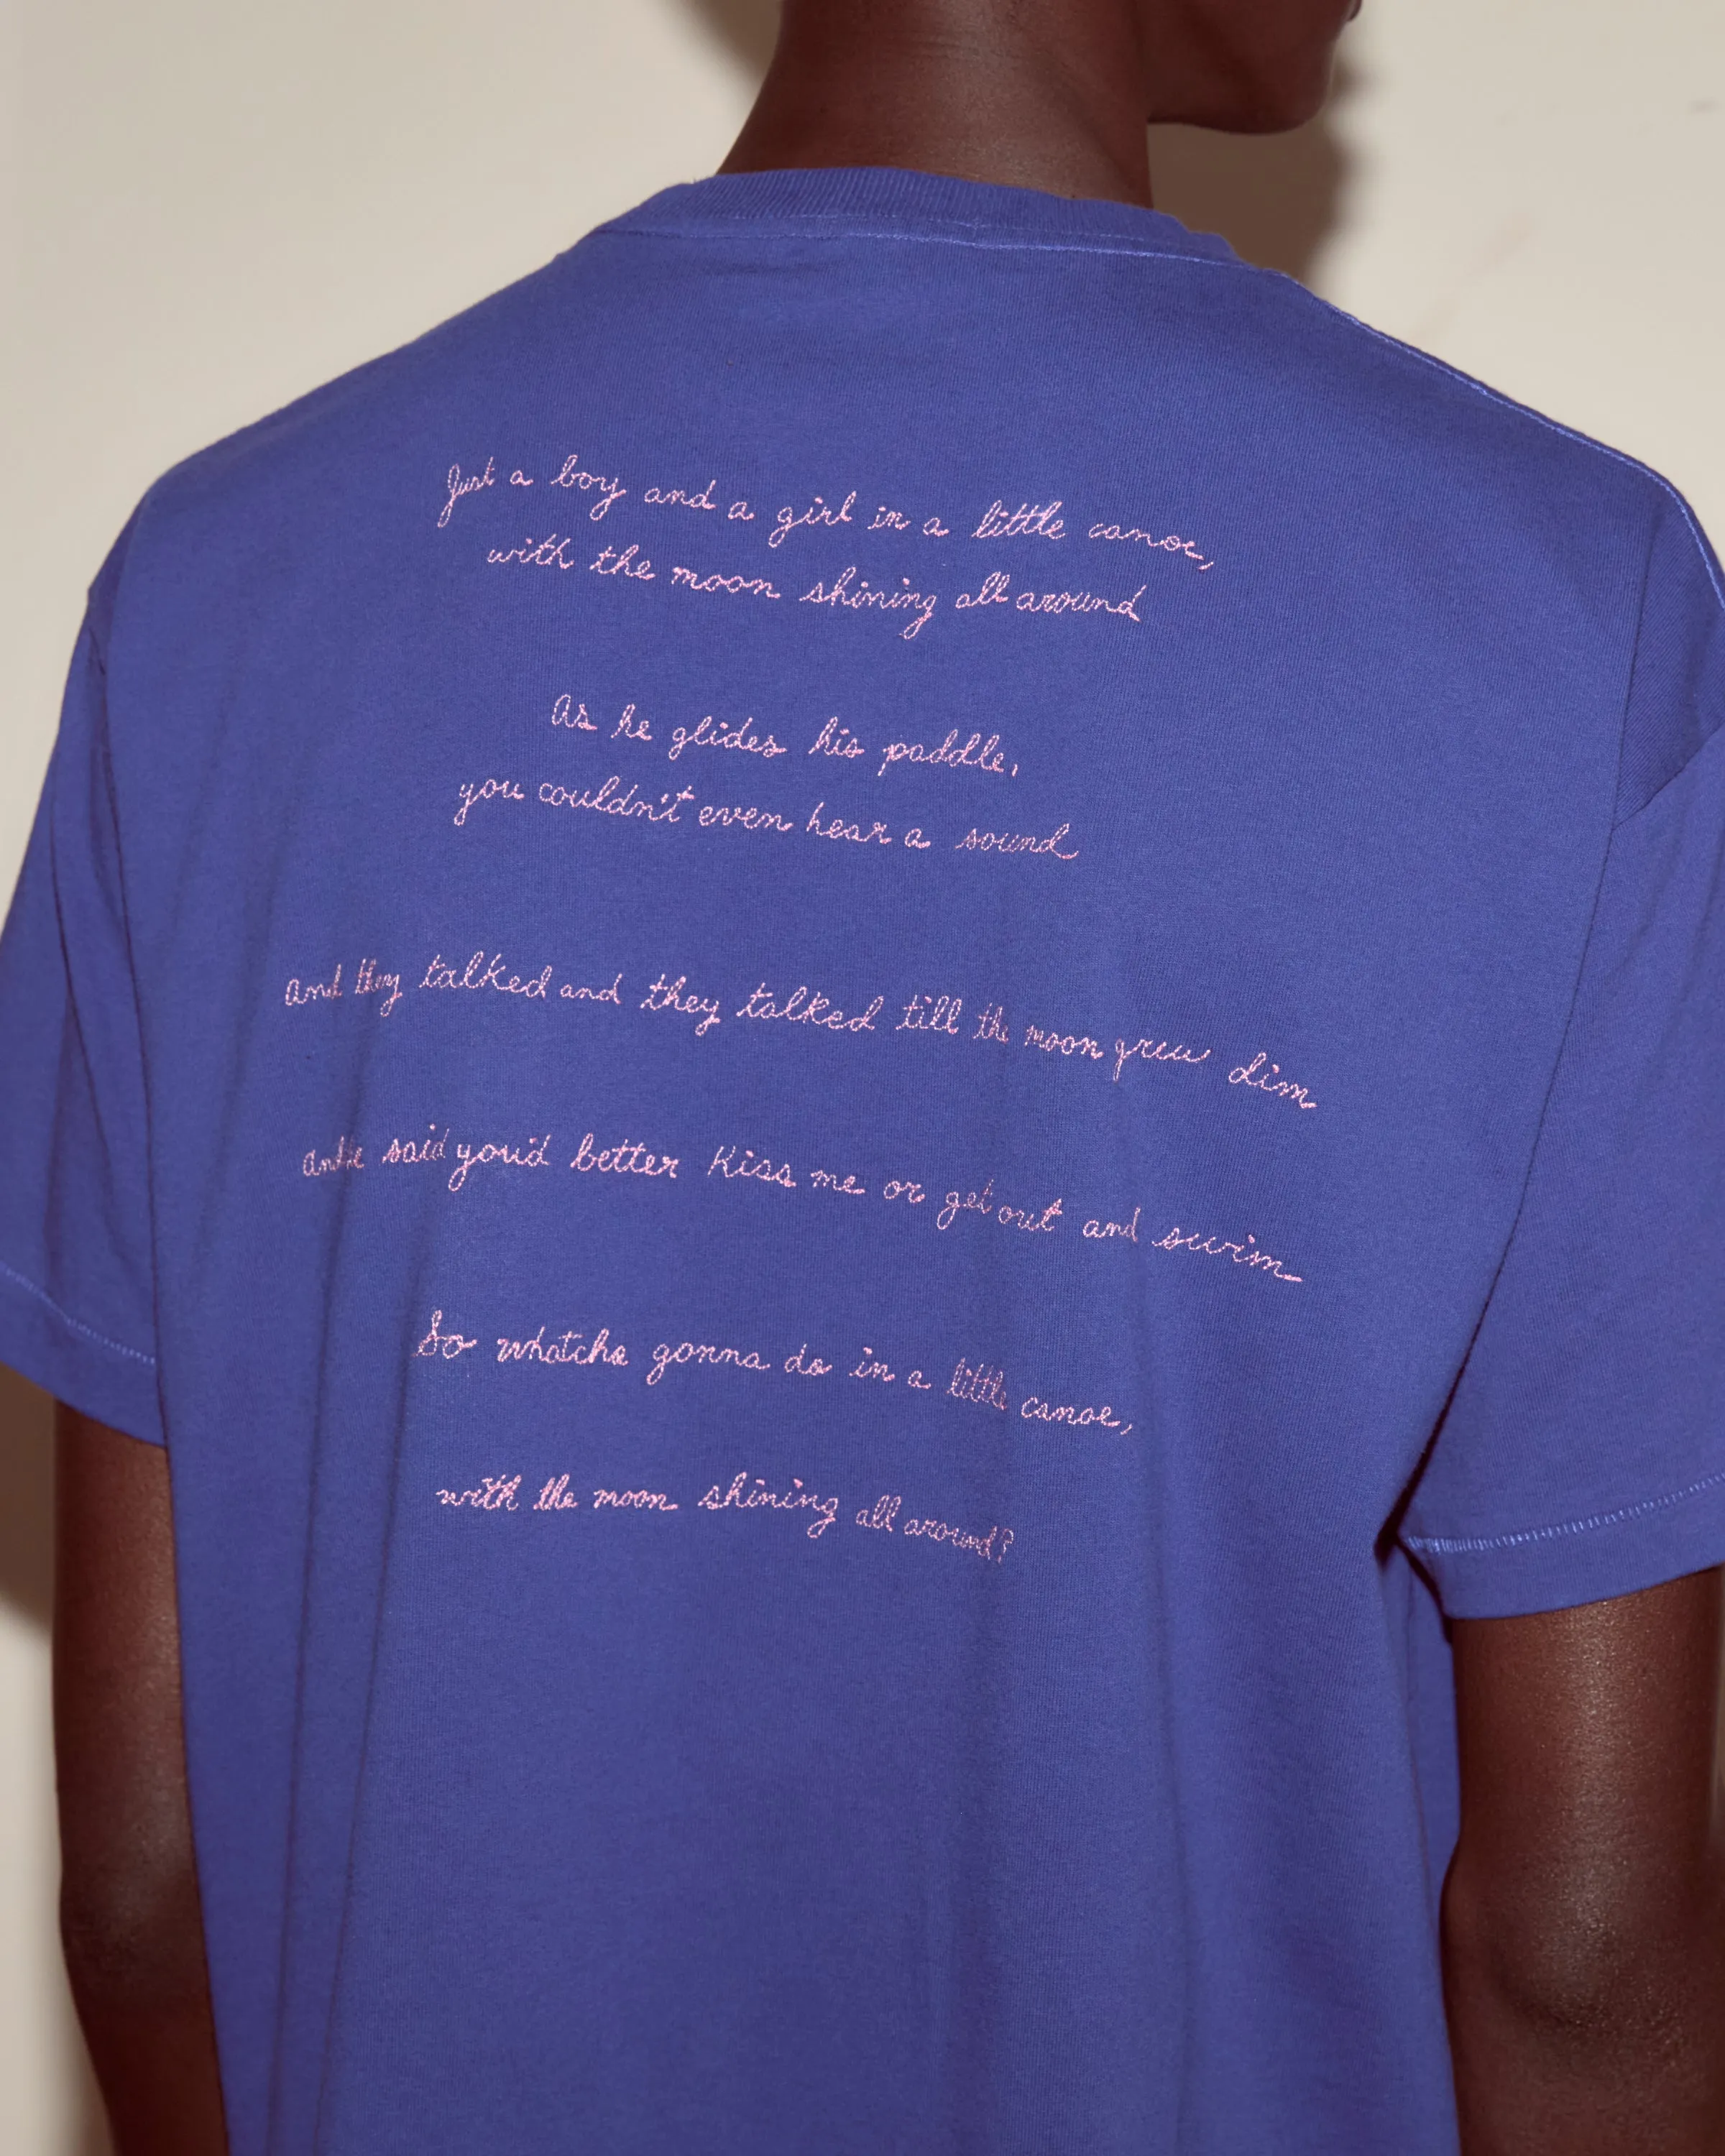 Just a boy and a girl in a little canoe,
with the moon shining all around
As he glides his paddle,
you couldn't even hear a sound
And they talked and they talked till the moon grew dim
and he said you'd better kiss me or get out and swim
So whatcha gonna do in a little canoe,
with the moon shining all around?